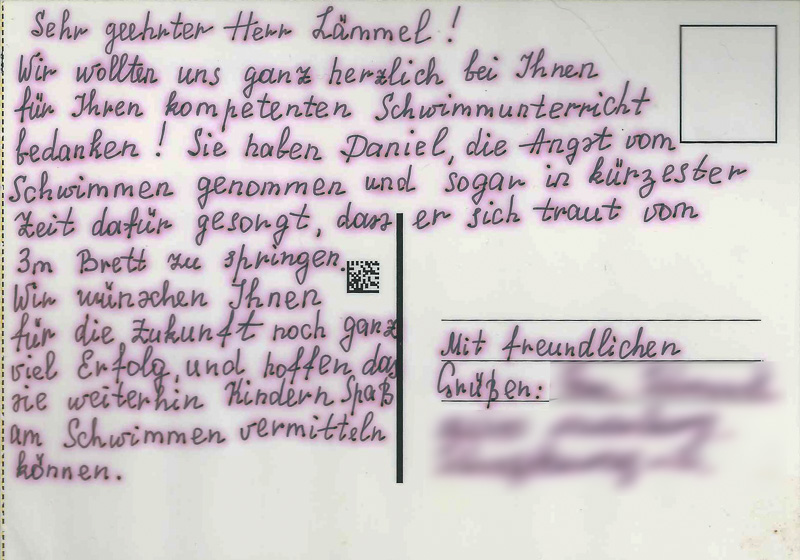 Sehr geehrter Herr Lämmel!
Wir wollten uns ganz herzlich bei Ihnen
für Ihren kompetenten Schwimmunterricht
bedanken! Sie haben Daniel, die Angst vom
Schwimmen genommen und sogar in kürzester
Zeit dafür gesorgt, dass er sich traut vom
3m Brett zu springen.
Wir wünschen Ihnen
für die Zukunft noch ganz
viel Erfolg, und hoffen das
sie weiterhin Kindern Spaß
am Schwimmen vermitteln
können.
Mit freundlichen
Grüßen: